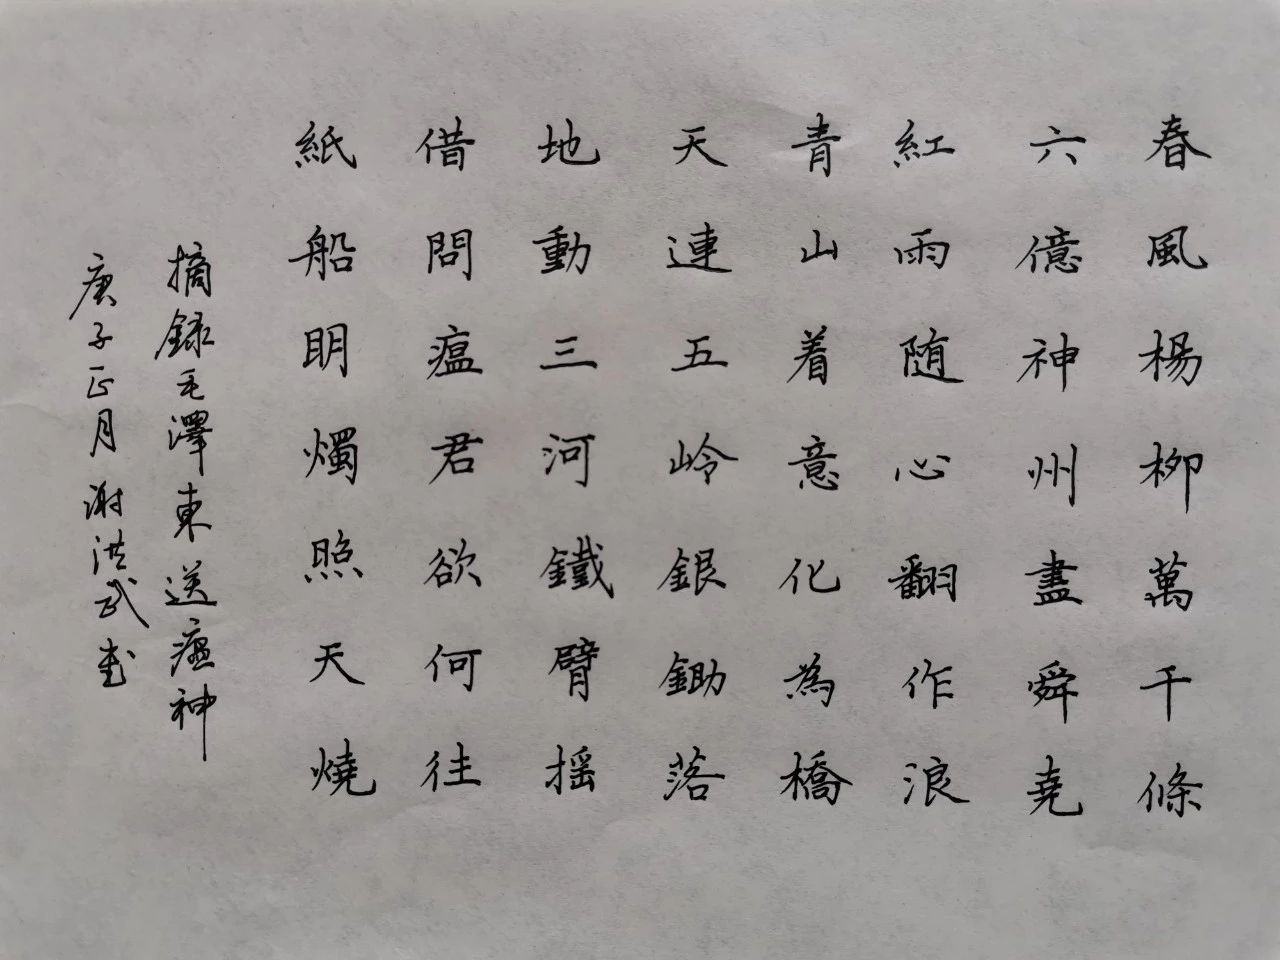 春風楊柳萬千條
六億神州盡舜堯
紅雨随心翻作浪
青山着意化為橋
天連五岭銀鋤落
地動三河鐵臂摇
借問瘟君欲何往
紙船明燭照天燒
摘録毛澤東送瘟神
庚子正月谢洪武书